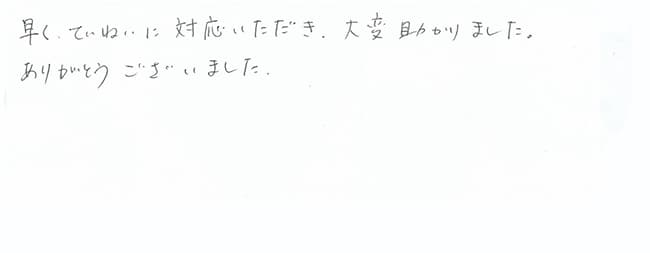 早く、ていねいに対応いただき、大変助かりました。
ありがとうございました。